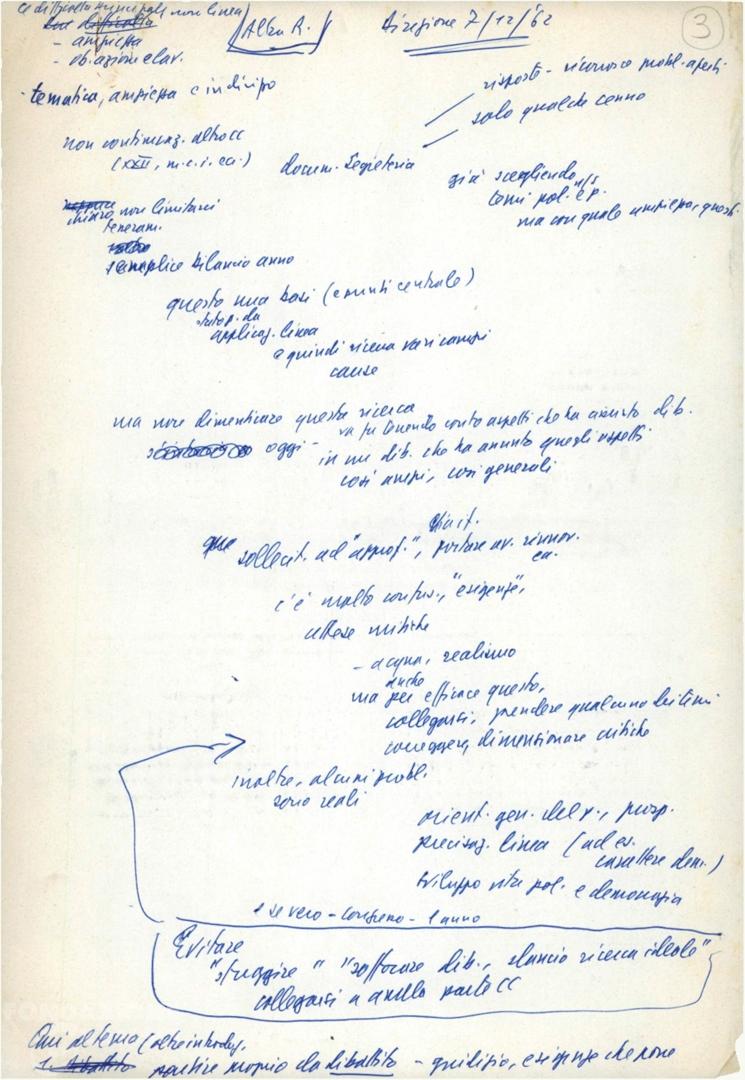 le difficoltà municipali non linea)
- ampiezza
- ob. azione elav.
Alba R.
Direzione 7/12/62
3
- tematica, ampiezza e indirizzo
risposto - riconosce probl. aperti
solo qualche cenno
non continuaz. altro CC
(XXII, m.c.i. ecc.)
docum. Segreteria
già scegliendo
temi pol. e p.
ma con quale ampiezza, quest.
chiaro non limitarci
semplice bilancio anno
questo una base (e punti centrale)
applicaz. linea
e quindi ricerca vari campi
cause
ma non dimenticare questa ricerca
va fu tenendo conto aspetti che ha assunto dib.
oggi - in un dib. che ha assunto quegli aspetti
così ampi, così generali
sollecit. ad "approf.", portare av. rinnov.
ecc.
c'è molto confus., "esigenze",
attese mitiche
- acqua, realismo
anche
ma per efficace questo,
collegarsi, prendere qualcuno dei temi
correggere, dimensionare critiche
inoltre, alcuni probl.
sono reali
orient. gen. del p., prosp.
precisaz. linea (ad es.
carattere dem.)
sviluppo vita pol. e democrazia
e se vero - congresso - 1 anno
Evitare
"sfuggire" "soffocare dib., slancio ricerca ideale"
collegarsi a quella parte CC
Qui al tema (oltre introduz.
1. dibattito partire proprio da dibattito - giudizio, esigenze che pone